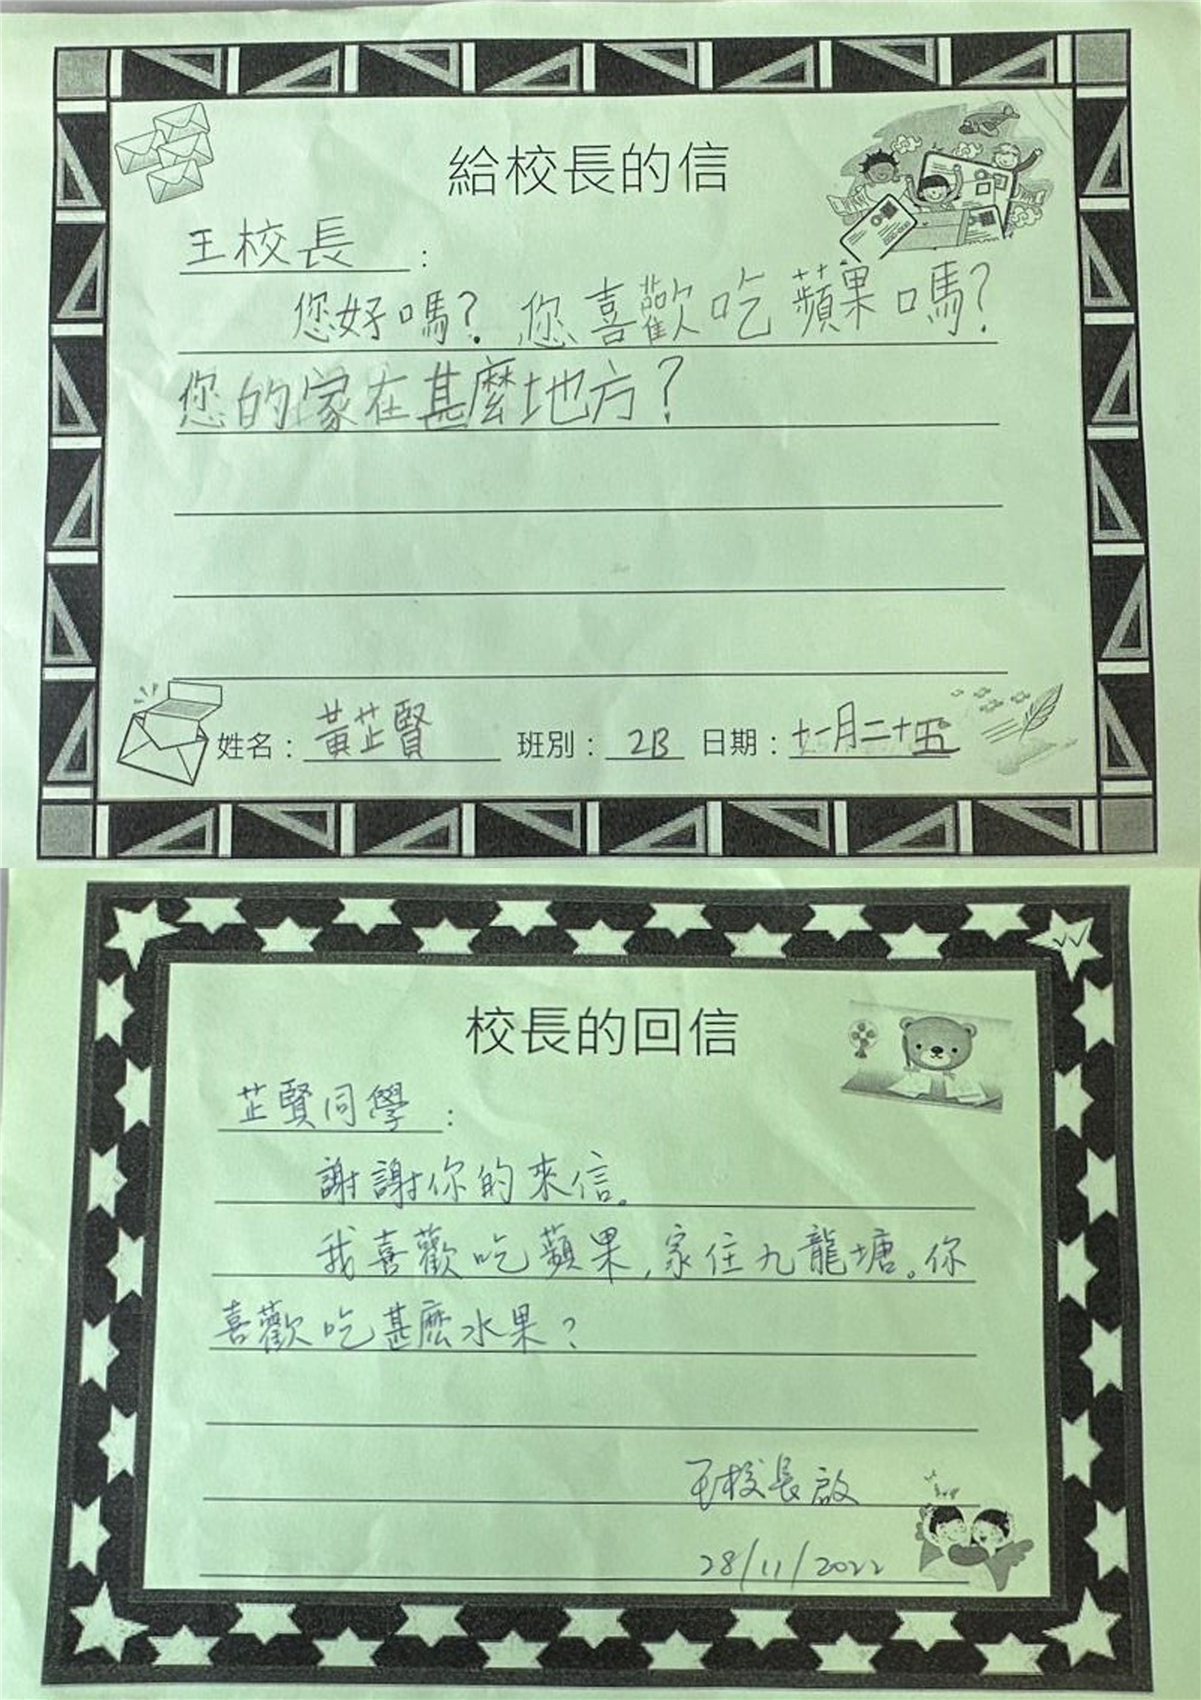 給校長的信
王校長：
您好嗎？您喜歡吃蘋果嗎？
您的家在甚麼地方？
姓名：黃芷賢 班別：2B 日期：十一月二十五
校長的回信
芷賢同學：
謝謝你的來信。
我喜歡吃蘋果，家住九龍塘。你
喜歡吃甚麼水果？
王校長啟
28/11/2022